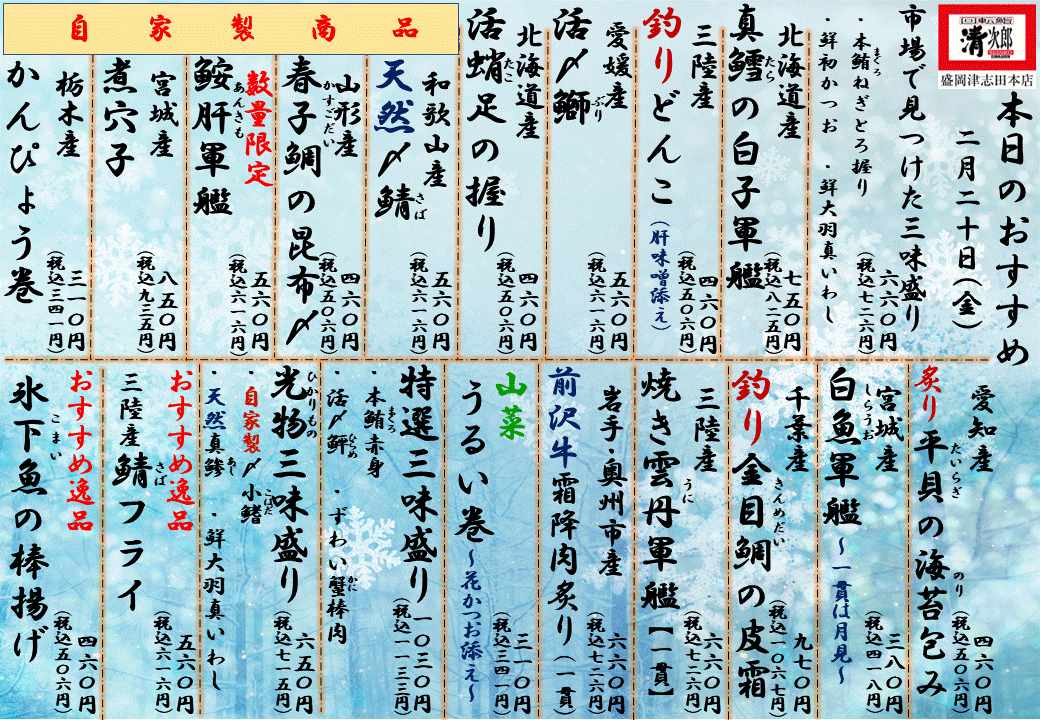 回転鮨
清次郎
盛岡津志田本店
本日のおすすめ
二月二十日(金)
市場で見つけた三味盛り
・本鮪ねぎとろ握り
まぐろ
・鮮初かつお ・鮮大羽真いわし
六六〇円
(税込七二六円)
北海道産
真鱈の白子軍艦
たら
七五〇円
(税込八二五円)
三陸産
釣りどんこ
(肝味噌添え)
四六〇円
(税込五〇六円)
愛媛産
活〆鰤
ぶり
五六〇円
(税込六一六円)
北海道産
活蛸足の握り
たこ
四六〇円
(税込五〇六円)
自家製商品
和歌山産
天然〆鯖
さば
五六〇円
(税込六一六円)
山形産
春子鯛の昆布〆
かすごだい
四六〇円
(税込五〇六円)
数量限定
鮟肝軍艦
あんきも
五六〇円
(税込六一六円)
宮城産
煮穴子
八五〇円
(税込九三五円)
栃木産
かんぴょう巻
三一〇円
(税込三四一円)
愛知産
炙り平貝の海苔包み
たいらぎ
のり
四六〇円
(税込五〇六円)
宮城産
白魚軍艦
しらうお
~一貫は月見~
三八〇円
(税込四一八円)
千葉産
釣り金目鯛の皮霜
きんめだい
九七〇円
(税込一〇六七円)
三陸産
焼き雲丹軍艦【一貫】
うに
六六〇円
(税込七二六円)
岩手・奥州市産
前沢牛霜降肉炙り(一貫)
六六〇円
(税込七二六円)
山菜
うるい巻
~花かつお添え~
三一〇円
(税込三四一円)
特選三味盛り
・本鮪赤身
まぐろ
・活〆鮃 ・ずわい蟹棒肉
ひらめ
かに
一〇三〇円
(税込一一三三円)
光物三味盛り
ひかりもの
・自家製〆小鰭
こはだ
・天然真鯵 ・鮮大羽真いわし
あじ
六五〇円
(税込七一五円)
おすすめ逸品
三陸産鯖フライ
さば
五六〇円
(税込六一六円)
おすすめ逸品
氷下魚の棒揚げ
こまい
四六〇円
(税込五〇六円)